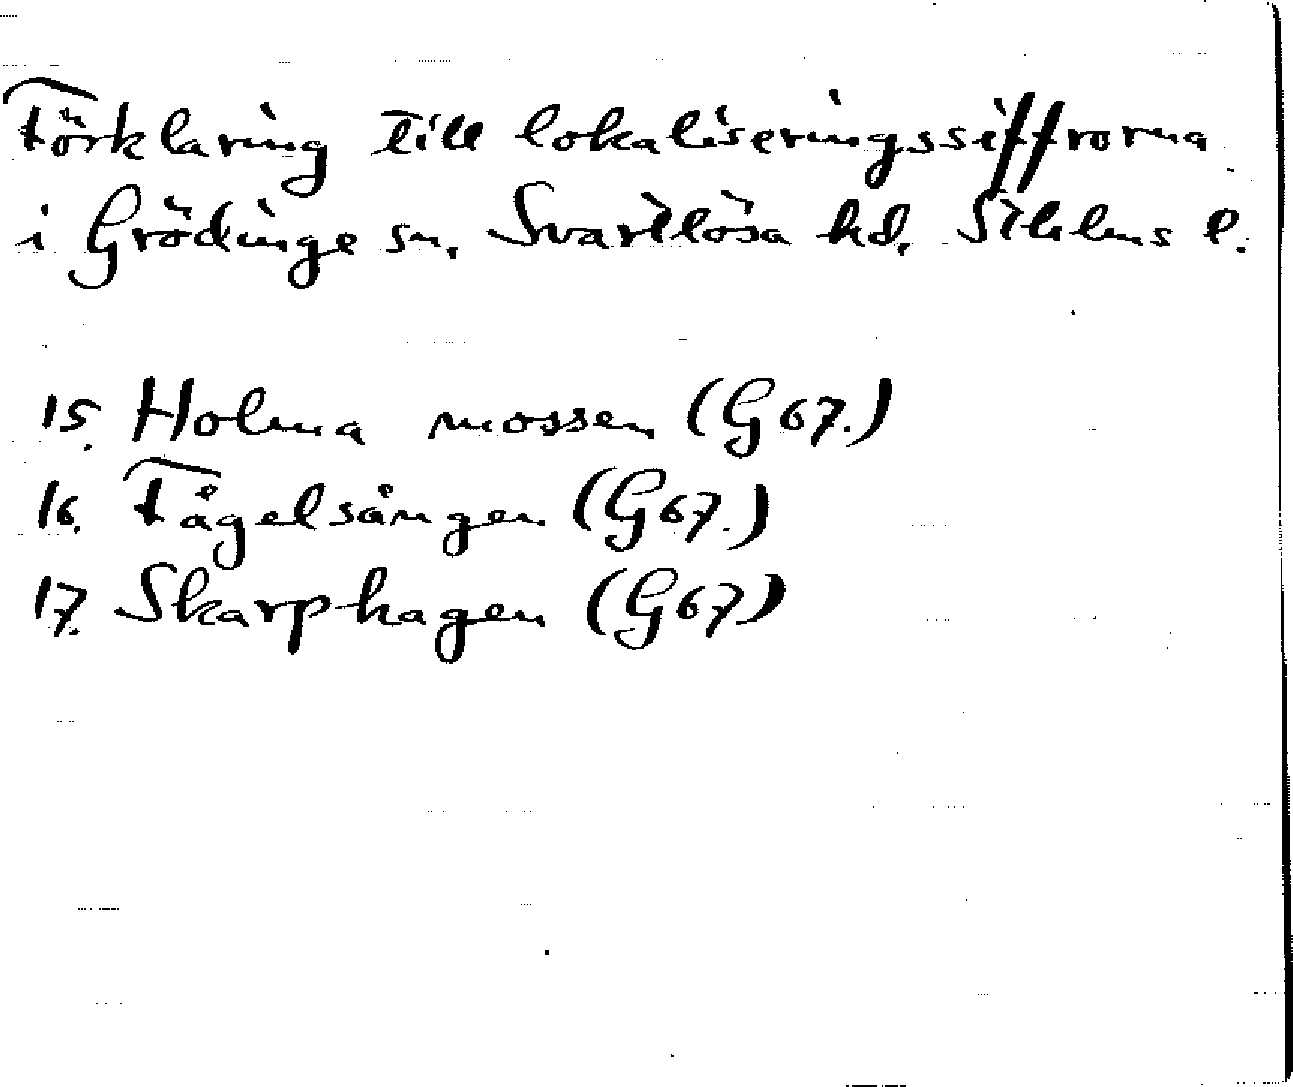 Förklaring till lokaliseringssiffrorna
i Grödinge sn. Svartlösa hd. Sthlms l.
15. Holma mossen (G67.)
16. Fågelsången (G67.)
17. Skarphagen (G67)